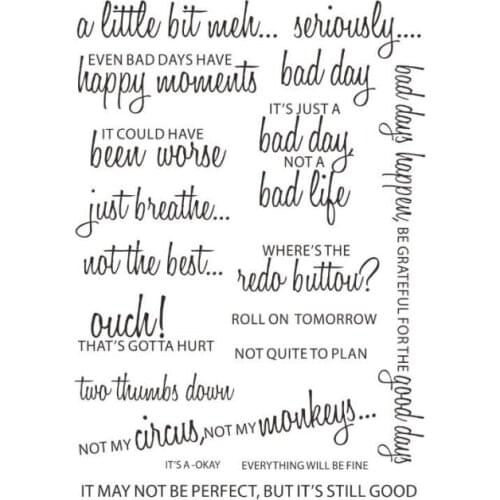 a little bit meh... seriously....
EVEN BAD DAYS HAVE
happy moments
bad day
IT'S JUST A
bad day,
NOT A
bad life
IT COULD HAVE
been worse
just breathe...
not the best...
WHERE'S THE
redo button?
ouch!
THAT'S GOTTA HURT
ROLL ON TOMORROW
NOT QUITE TO PLAN
two thumbs down
NOT MY circus, NOT MY monkeys...
IT'S A -OKAY
EVERYTHING WILL BE FINE
IT MAY NOT BE PERFECT, BUT IT'S STILL GOOD
bad days happen, BE GRATEFUL FOR THE good days